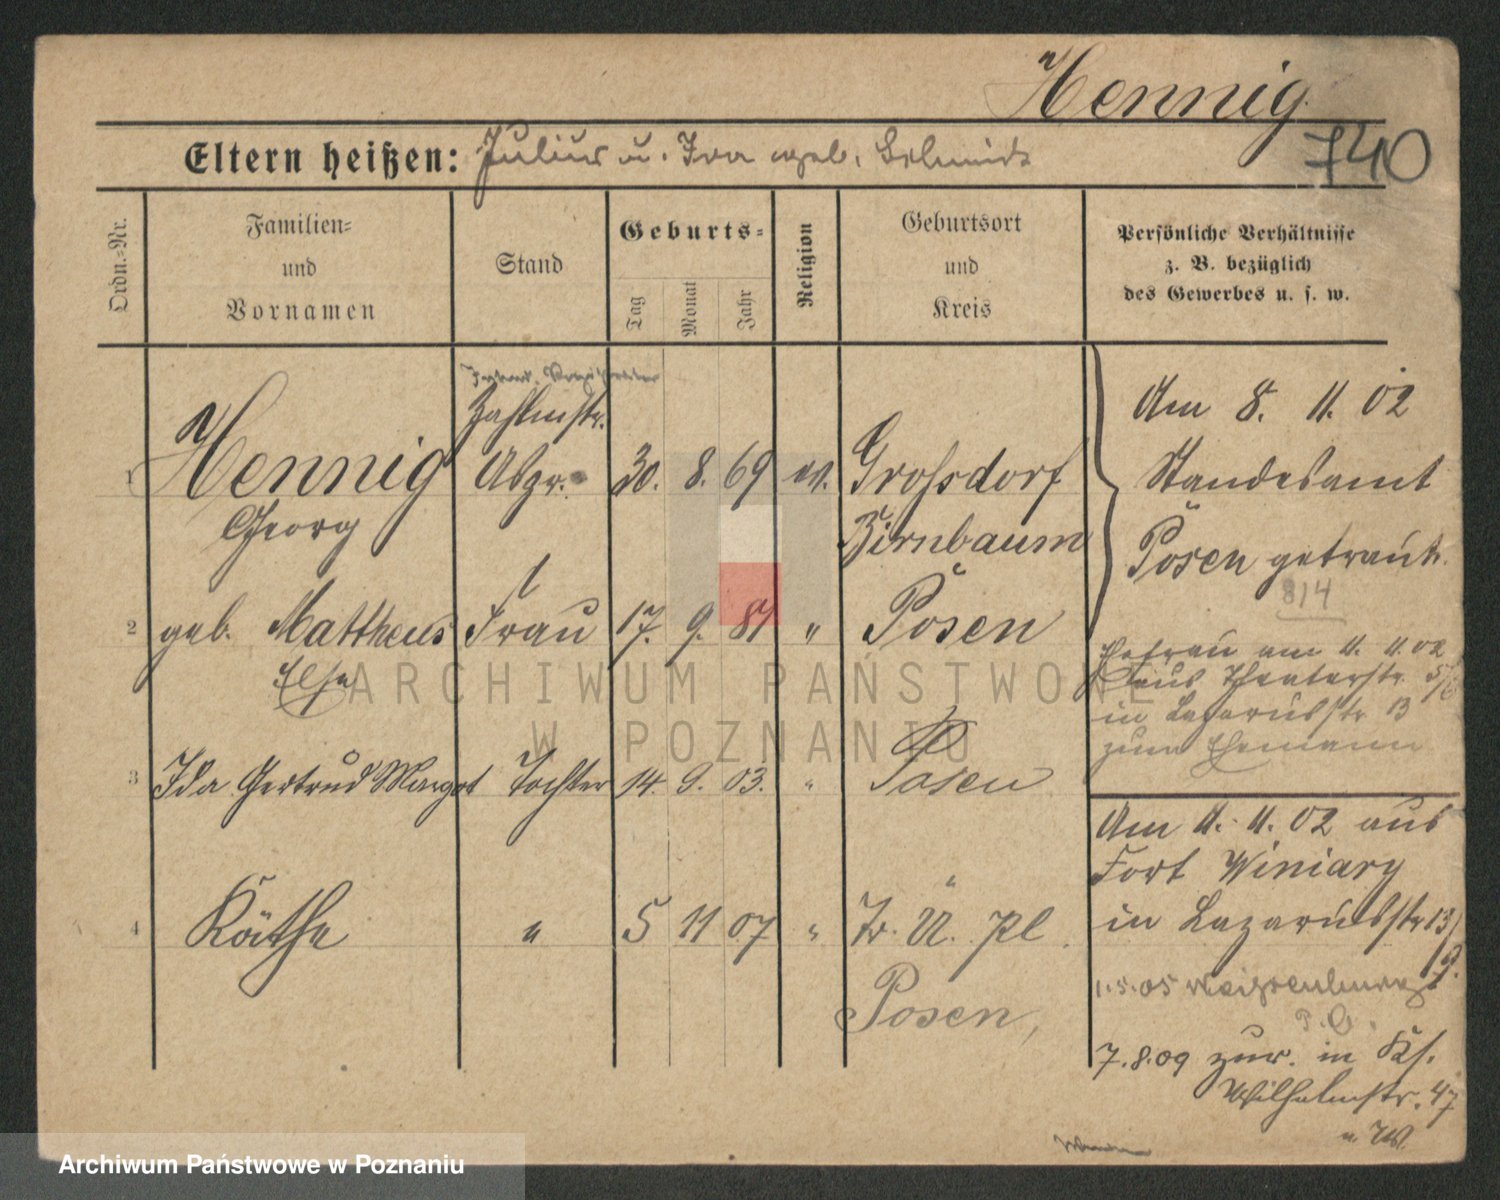 Hennig
740
Eltern heißen: Julius u. Ida geb. Schmidt
Ordn.=Nr.
Familien=
und
Vornamen
Stand
Geburts=
Tag
Monat
Jahr
Religion
Geburtsort
und
Kreis
Persönliche Verhältnisse
z. B. bezüglich
des Gewerbes u. s. w.
Zahlmstr.
1 Hennig Aspr. 30. 8. 69 ev. Grossdorf
Georg Birnbaum
2 geb. Mattheus Frau 17. 9. 81 " Posen
Else
3 Ida Gertrud Margot Tochter 14. 9. 03. " Posen
4 Käthe " 5 11 07 " Tr. Ü. Pl.
Posen,
Am 8. 11. 02
Standesamt
Posen getraut.
814
Ehefrau am 11. 11. 02
aus Theaterstr. 5/6
in Lazarusstr 13
zum Ehemann
Am 11. 11. 02 aus
Fort Winiary
in Lazarusstr 13/
1.5.05
7.8.09 zur. in
Wilhelmstr. 47
ARCHIWUM PAŃSTWOWE
W POZNANIU
Archiwum Państwowe w Poznaniu